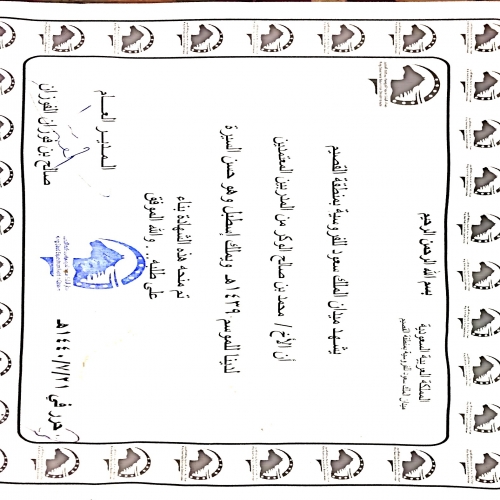 بسم الله الرحمن الرحيم
المملكة العربية السعودية
ميدان الملك سعود للفروسية بمنطقة القصيم
يشهد ميدان الملك سعود للفروسية بمنطقة القصيم
أن الأخ / محمد بن صالح الوكر من المدربين المعتمدين
لدينا للموسم ١٤٣٩هـ ويملك إسطبل وهو حسن السيرة
تم منحه هذه الشهادة بناء
على طلبه ... والله الموفق
المدير العام
صالح بن فوزان الفوزان
حرر في ١٤٤٠/٧/٢١هـ